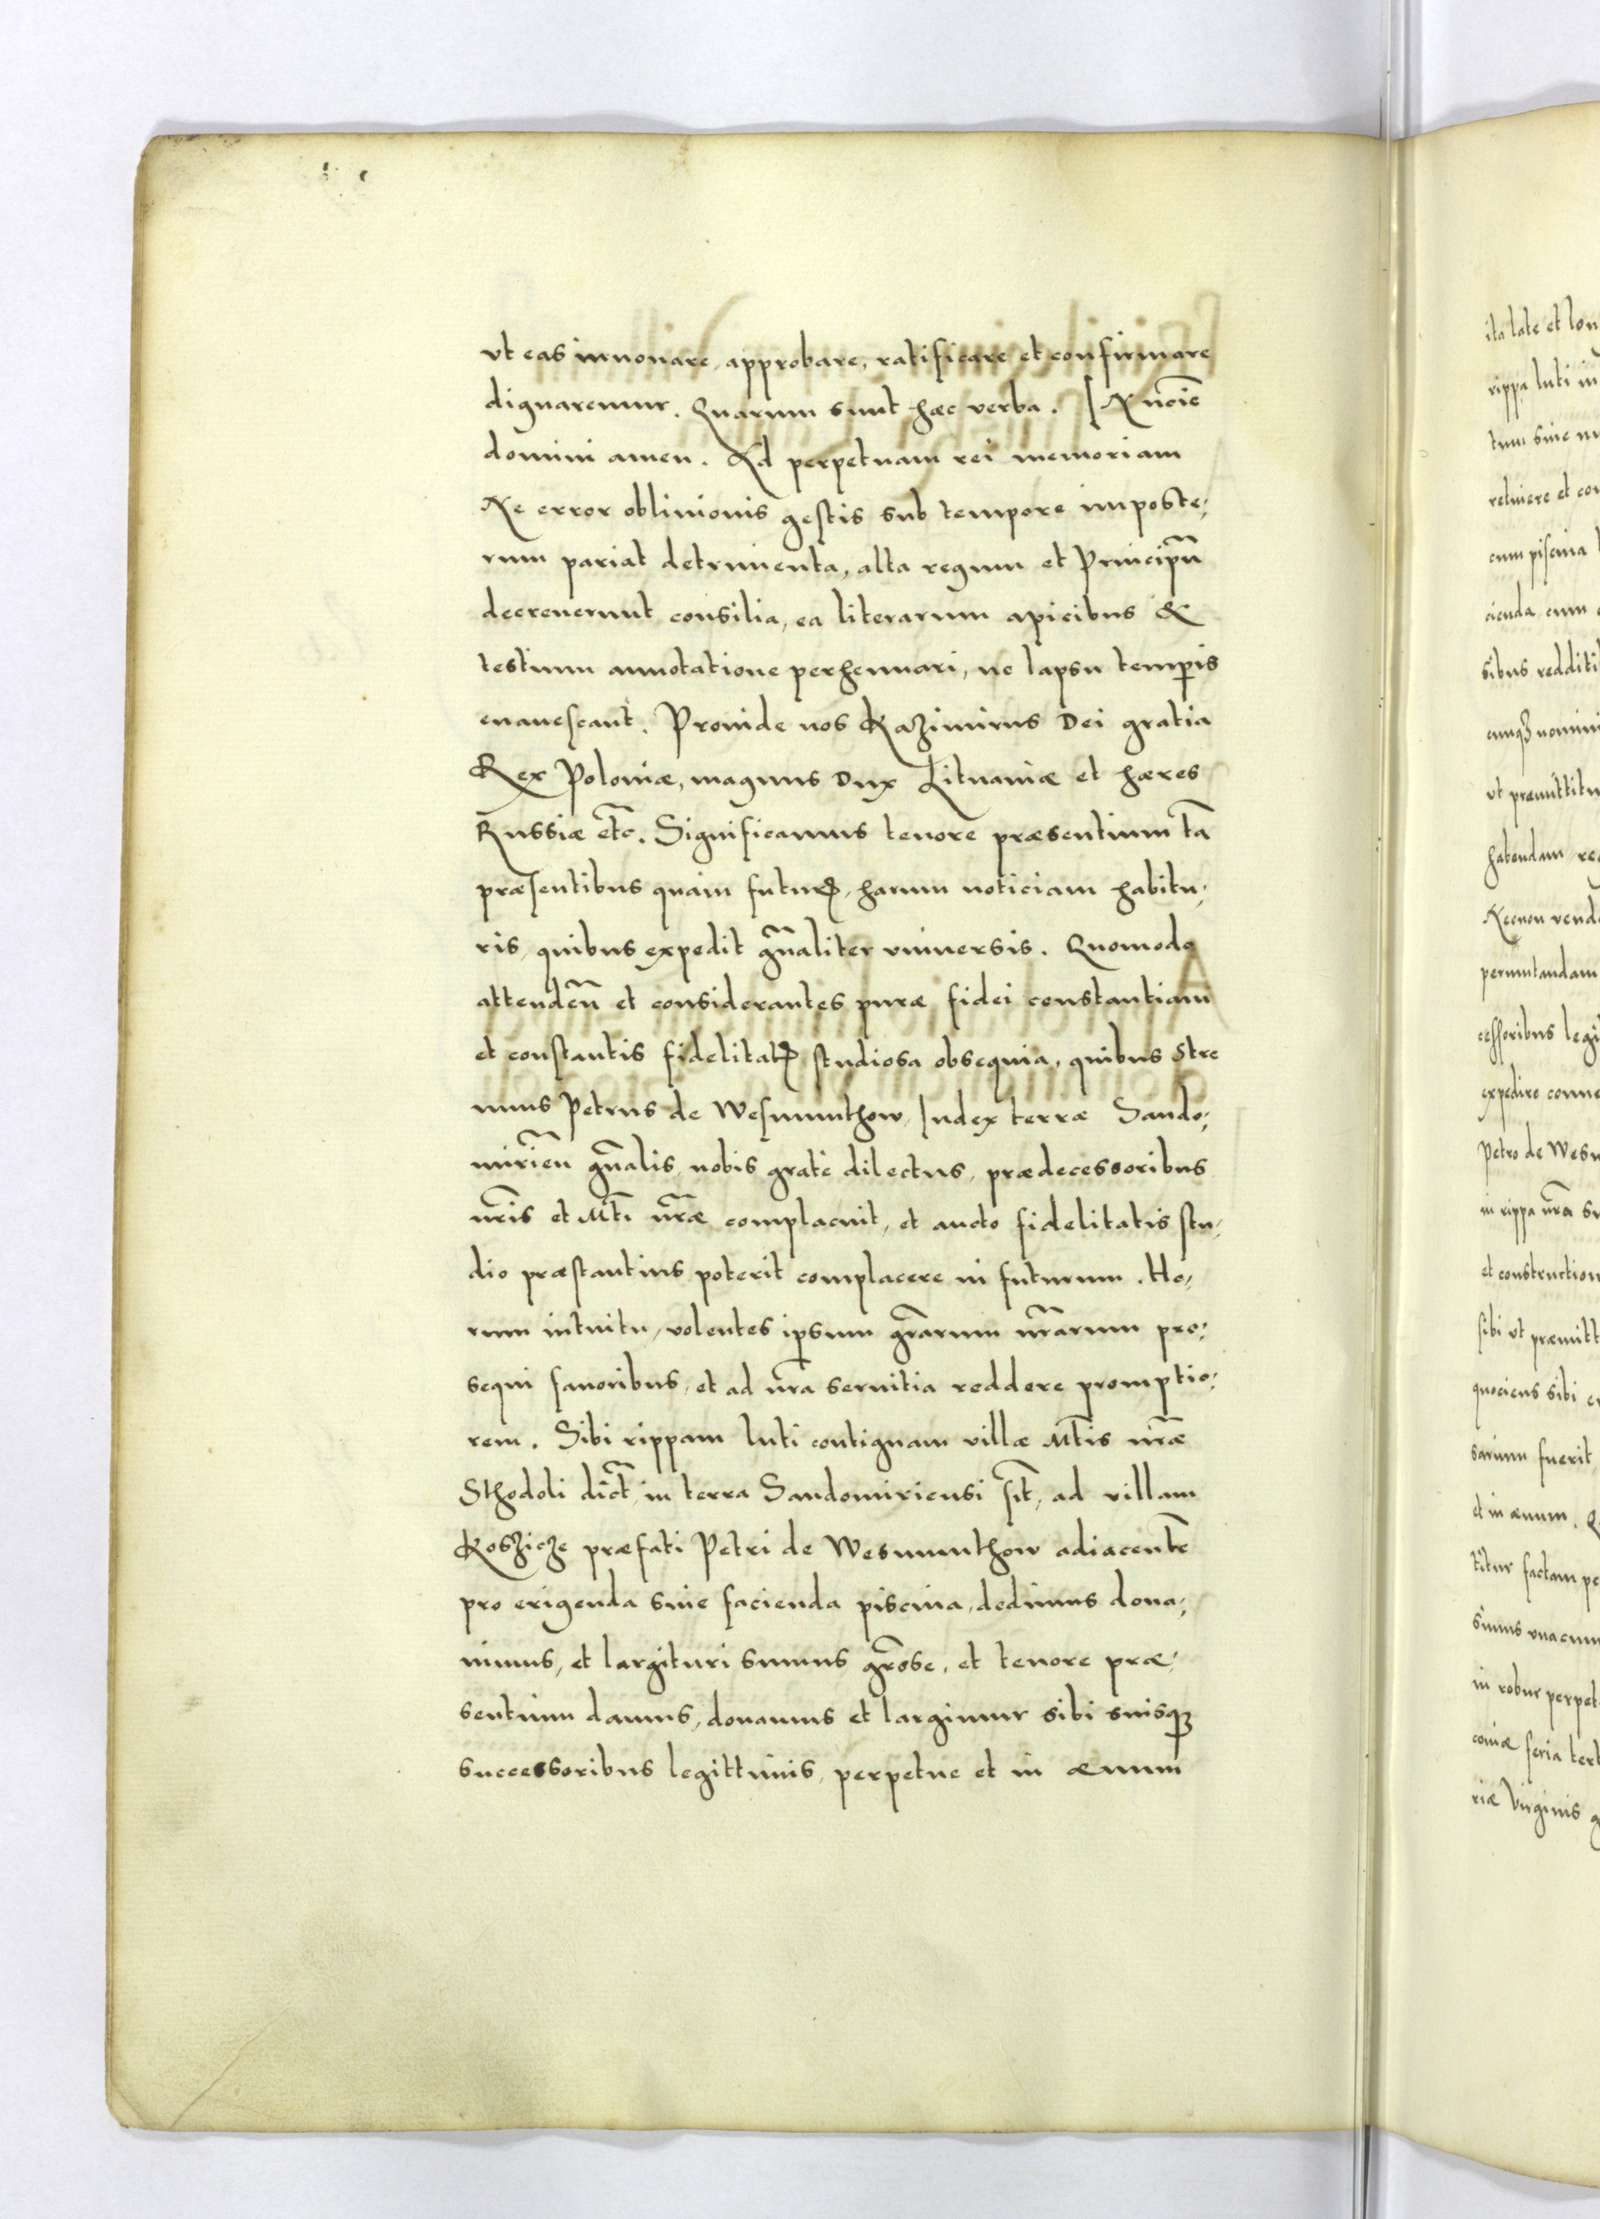 vt eas innouare, approbare, ratificare et confirmare
dignaremur. Quarum sunt hæc verba. In no͞ie
domini amen. Ad perpetuam rei memoriam
Ne error obliuionis gestis sub tempore imposte,
rum pariat detrimenta, alta regum et Principu͞
decreuerunt consilia, ea literarum apicibus &
testium annotatione perhennari, ne lapsu temp̱is
euanescant. Proinde nos Kazimirus Dei gratia
Rex Poloniæ, magnus Dux Lituaniæ et hæres
Russiæ et͞c. Significamus tenore præsentium ta͞
præsentibus quàm futurꝭ, harum noticiam habitu,
ris, quibus expedit gn͞aliter vniuersis. Quomodo
attenden͞ et considerantes puræ fidei constantiam
et constantis fidelitatꝭ studiosa obsequia, quibus Stre
nuus Petrus de Wesmunthow, Iudex terræ Sando,
mirien͞ gn͞alis, nobis gratè dilectus, prædecessoribus
nr͞is et M͞ti nr͞æ complacuit, et aucto fidelitatis stu,
dio præstantius poterit complacere in futurum. Ho,
rum intuitu, volentes ipsum gr͞arum nr͞arum pro,
sequi fauoribus, et ad nr͞a seruitia reddere promptio,
rem. Sibi rippam luti contiguam villæ M͞tis nr͞æ
Sthodoli dict͞, in terra Sandomiriensi sit͞, ad villam
Koszicze præfati Petri de Wesmunthow adiacente͞
pro erigenda siue facienda piscina, dedimus dona,
uimus, et largituri sumus gr͞ose, et tenore præ,
sentium damus, donamus et largimur sibi suisqꝫ
successoribus legittimis, perpetue et in æuum
ita late et lon
rippa luti in
tum siue
retinere et con
cum piscina
cienda, cum
sibus redditi
cumqꝫ nomini
vt præmittitu
habendam, re
Necnon vend
permutandam
cessoribus legi
expedire conue
Petro de Wesm
in rippa nr͞a
et construction
sibi vt præmitt
quociens sibi
sarium fuerit,
et in æuum.
titur factam pe
simus vnacum
in robur perpet
couiæ feria tert
riæ Virginis g